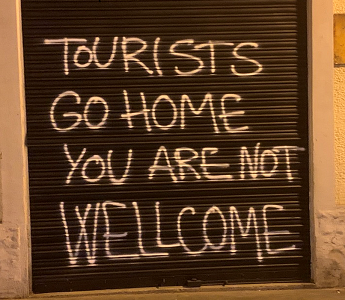 TOURISTS
GO HOME
YOU ARE NOT
WELLCOME